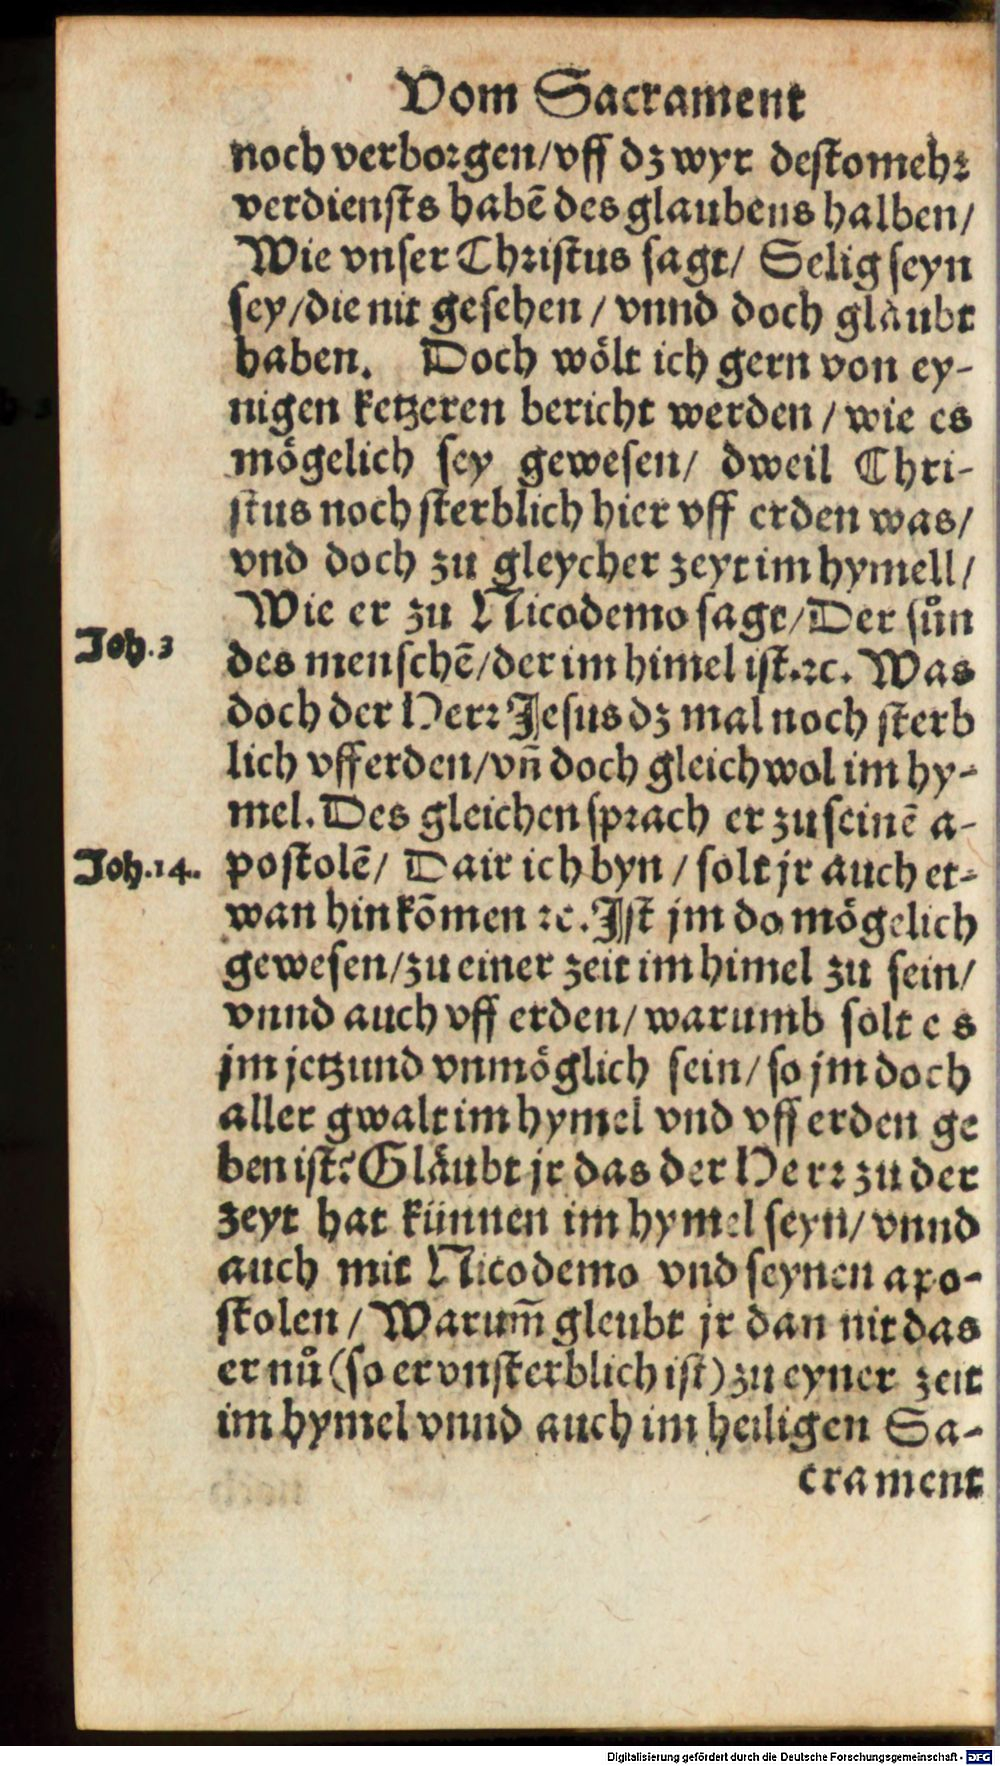 Vom Sacrament
noch verborgen/vff dz wyr destomehr
verdiensts habē des glaubens halben/
Wie vnser Christus sagt/ Selig seyn
sey/die nit gesehen / vnnd doch glaubt
haben. Doch wölt ich gern von ey-
nigen ketzeren bericht werden / wie es
mögelich sey gewesen/ dweil Chri-
stus noch sterblich hier vff erden was/
vnd doch zu gleycher zeyt im hymell/
Wie er zu Nicodemo sagt/Der sůn
Joh.3
des menschē/der im himel ist.ꝛc. Was
doch der Herr Jesus dz mal noch sterb
lich vff erden/vn̄ doch gleichwol im hy-
mel. Des gleichen sprach er zu seinē a-
Joh.14.
postolē/ Da ir ich byn / solt jr auch et-
wan hin kōmen ꝛc. Ist jm do mögelich
gewesen/zu einer zeit im himel zu sein/
vnnd auch vff erden/warumb solt es
jm jetzund vnmöglich sein/so jm doch
aller gwalt im hymel vnd vff erden ge
ben ist? Gläubt jr das der Herr zu der
zeyt hat künnen im hymel seyn/vnnd
auch mit Nicodemo vnd seynen apo-
stolen / Warum̄ gleubt jr dan nit das
er nů (so er vnsterblich ist) zu eyner zeit
im hymel vnnd auch im heiligen Sa-
crament
Digitalisierung gefördert durch die Deutsche Forschungsgemeinschaft - DFG